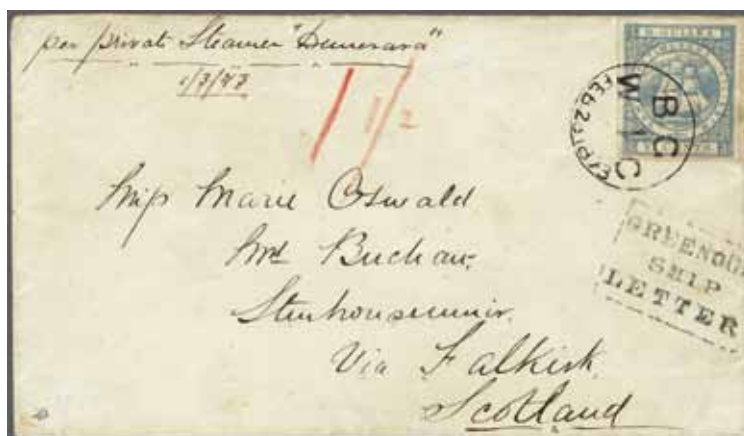 per private Steamer "Demerara"
1/3/73
1/2
B. GUIANA
B C
W I C
FEB 2
GREENOCK
SHIP
LETTER
Miss Marie Oswald
Mrs Buchan
Stenhousemuir.
Via Falkirk.
Scotland